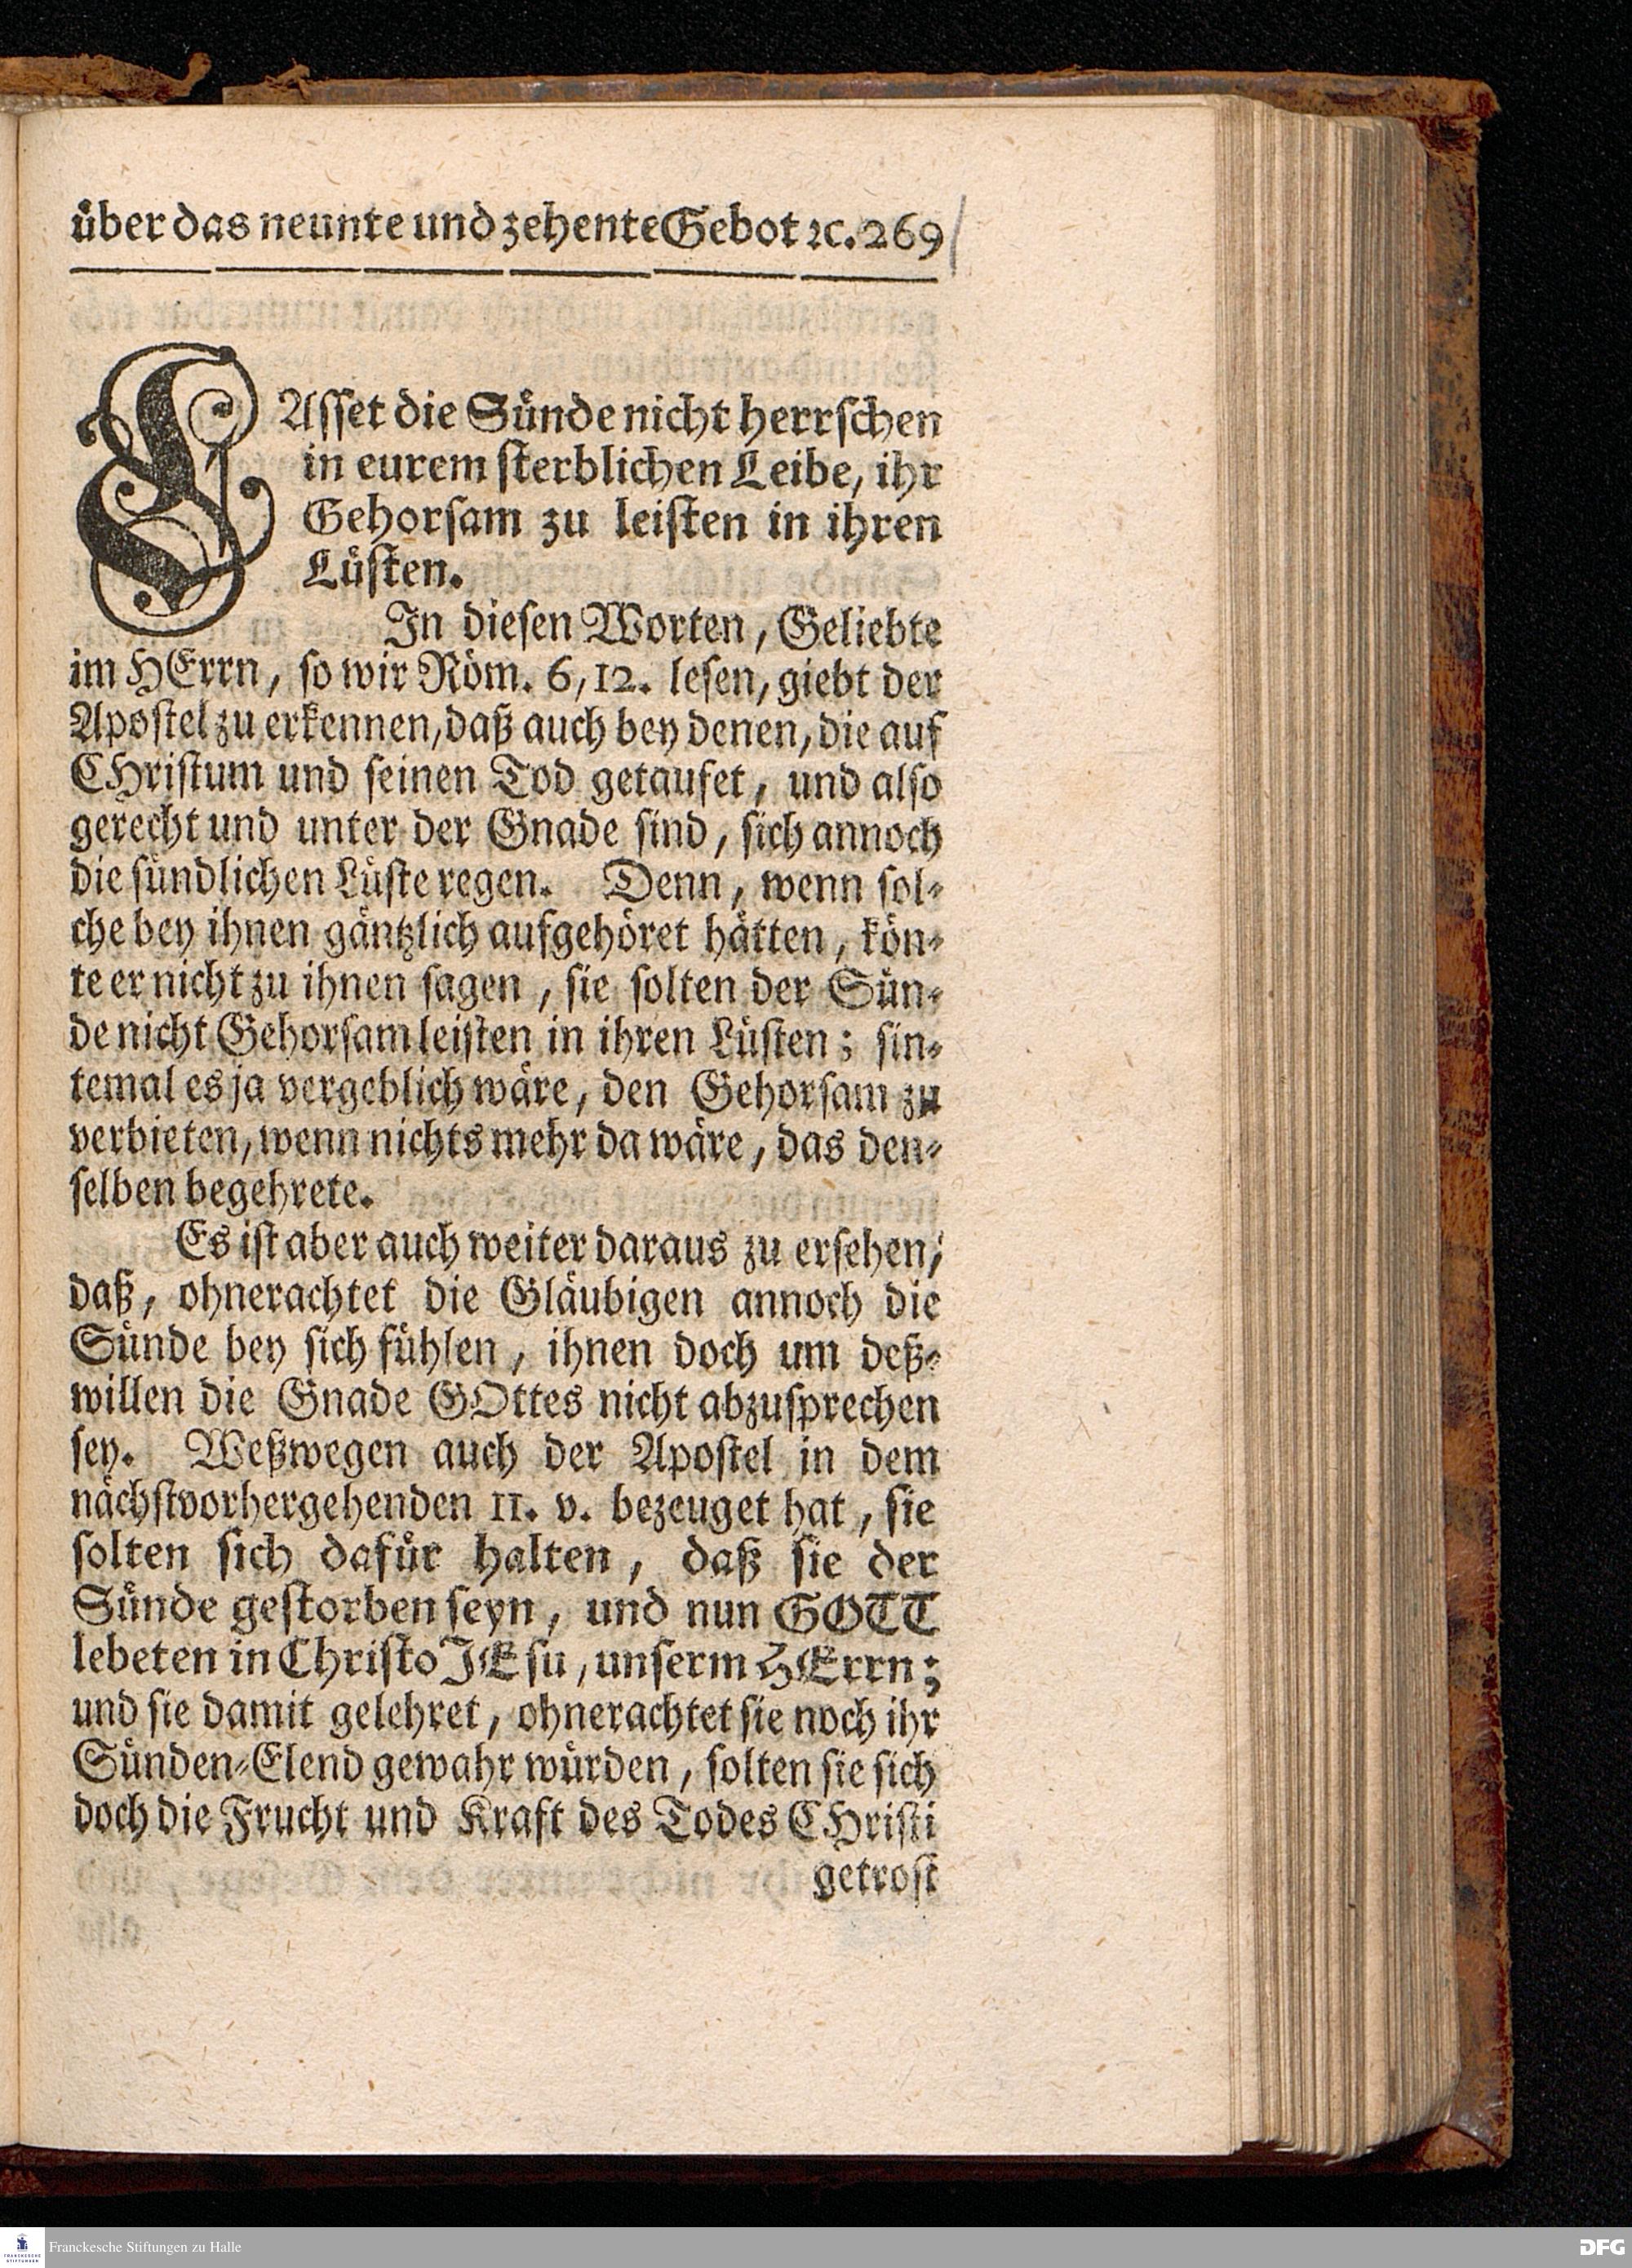 über das neunte und zehente Gebot ꝛc. 269
LAſſet die Sünde nicht herrſchen
in eurem ſterblichen Leibe, ihr
Gehorſam zu leiſten in ihren
Lüſten.
In dieſen Worten, Geliebte
im HErrn, ſo wir Röm. 6, 12. leſen, giebt der
Apoſtel zu erkennen, daß auch bey denen, die auf
CHriſtum und ſeinen Tod getaufet, und alſo
gerecht und unter der Gnade ſind, ſich annoch
die ſündlichen Lüſte regen. Denn, wenn ſol-
che bey ihnen gäntzlich aufgehöret hätten, kön-
te er nicht zu ihnen ſagen, ſie ſolten der Sün-
de nicht Gehorſam leiſten in ihren Lüſten; ſin-
temal es ja vergeblich wäre, den Gehorſam zu
verbieten, wenn nichts mehr da wäre, das den-
ſelben begehrete.
Es iſt aber auch weiter daraus zu erſehen,
daß, ohnerachtet die Gläubigen annoch die
Sünde bey ſich fühlen, ihnen doch um deß-
willen die Gnade GOttes nicht abzuſprechen
ſey. Weßwegen auch der Apoſtel in dem
nächſtvorhergehenden 11. v. bezeuget hat, ſie
ſolten ſich dafür halten, daß ſie der
Sünde geſtorben ſeyn, und nun GOTT
lebeten in Chriſto JEſu, unſerm HErrn;
und ſie damit gelehret, ohnerachtet ſie noch ihr
Sünden-Elend gewahr würden, ſolten ſie ſich
doch die Frucht und Kraft des Todes CHriſti
getroſt
FRANCKESCHE STIFTUNGEN
Franckesche Stiftungen zu Halle
DFG